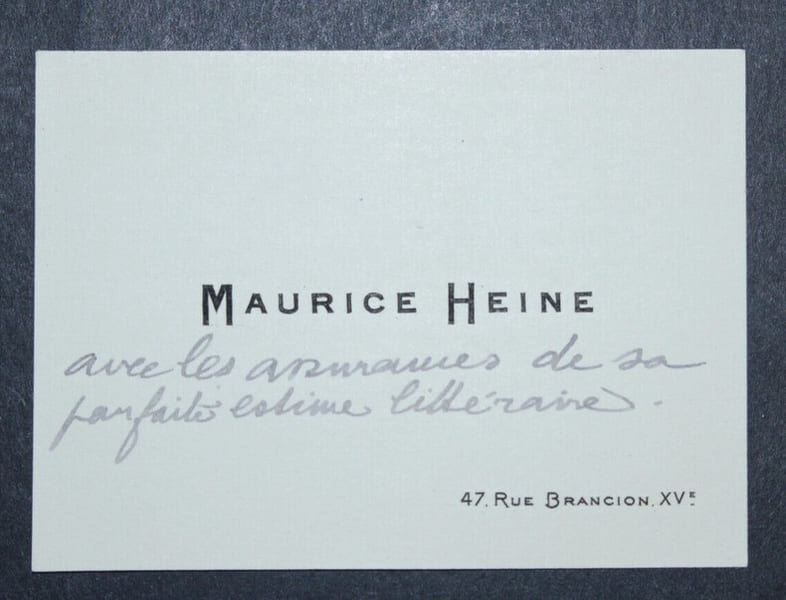 MAURICE HEINE
avec les assurances de sa
parfaite estime littéraire.
47, RUE BRANCION, XVE